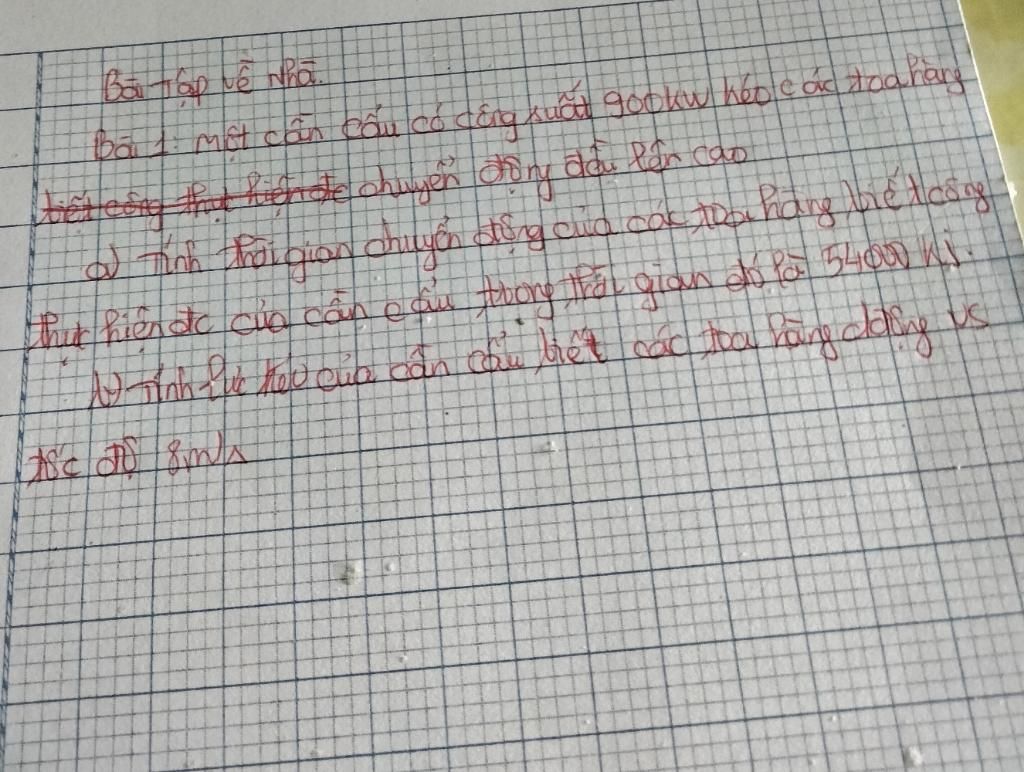 Bài tập về nhà.
Bài 1: một cần cẩu có công xuất 900kW kéo các toa hàng
chuyển động đều lên cao
a) Tính thời gian chuyển động của các toa hàng biết công
thực hiện đc của cần cẩu trong thời gian đó là 54000 kJ.
b) Tính lực kéo của cần cẩu biết các toa hàng động vs
tốc độ 8m/s